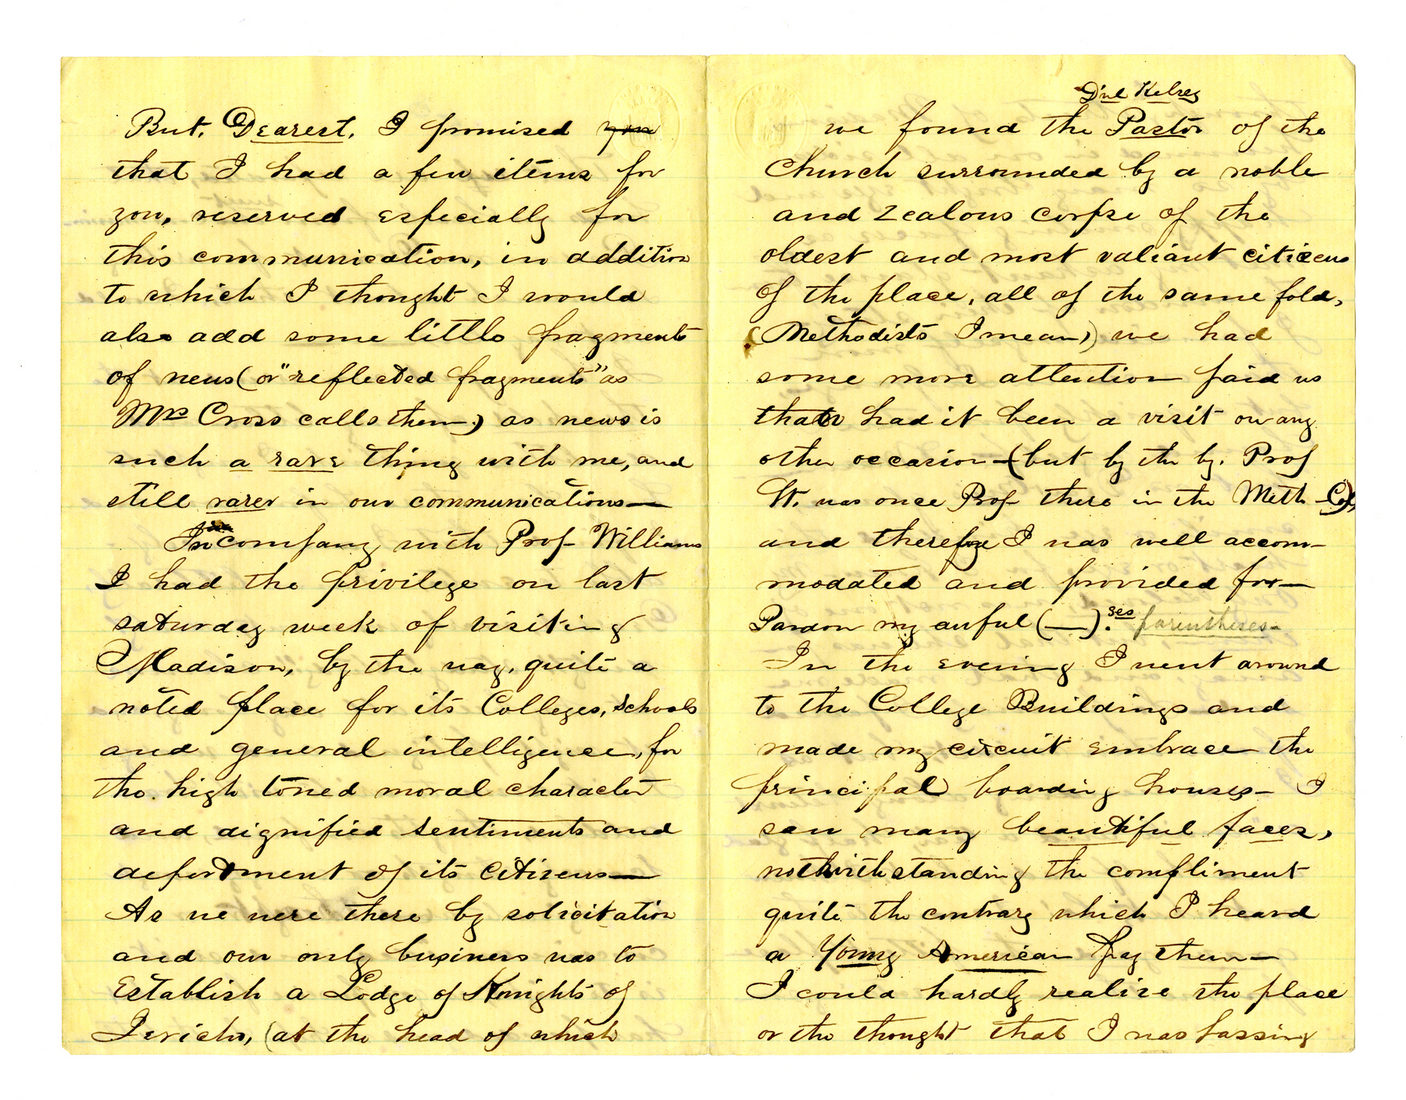 But, Dearest, I promised you
that I had a few items for
you, reserved especially for
this communication, in addition
to which I thought I would
also add some little fragments
of news (or "reflected fragments" as
Mrs Cross calls them,) as news is
such a rare thing with me, and
still rarer in our communications—
In company with Prof Williams
I had the privilege on last
saturday week of visiting
Madison, by the way, quite a
noted place for its Colleges, schools
and general intelligence, for
the high toned moral character
and dignified sentiments and
deportment of its Citizens—
As we were there by solicitation
and our only business was to
Establish a Lodge of Knights of
Jericho, (at the head of which
D'nl Kelsey
we found the Pastor of the
Church surrounded by a noble
and zealous corpse of the
oldest and most valiant citizens
of the place, all of the same fold,
(Methodists I mean,) we had
some more attention paid us
than had it been a visit on any
other occasion—(but by the by, Prof
W. was once Prof there in the Meth Col,)
and therefore I was well accom-
modated and provided for—
Pardon my awful (—).ses parentheses—
In the evening I went around
to the College Buildings and
made my circuit embrace the
principal boarding houses— I
saw many beautiful faces,
nothwithstanding the compliment
quite the contrary which I heard
a Young American pay them—
I could hardly realize the place
or the thought that I was passing